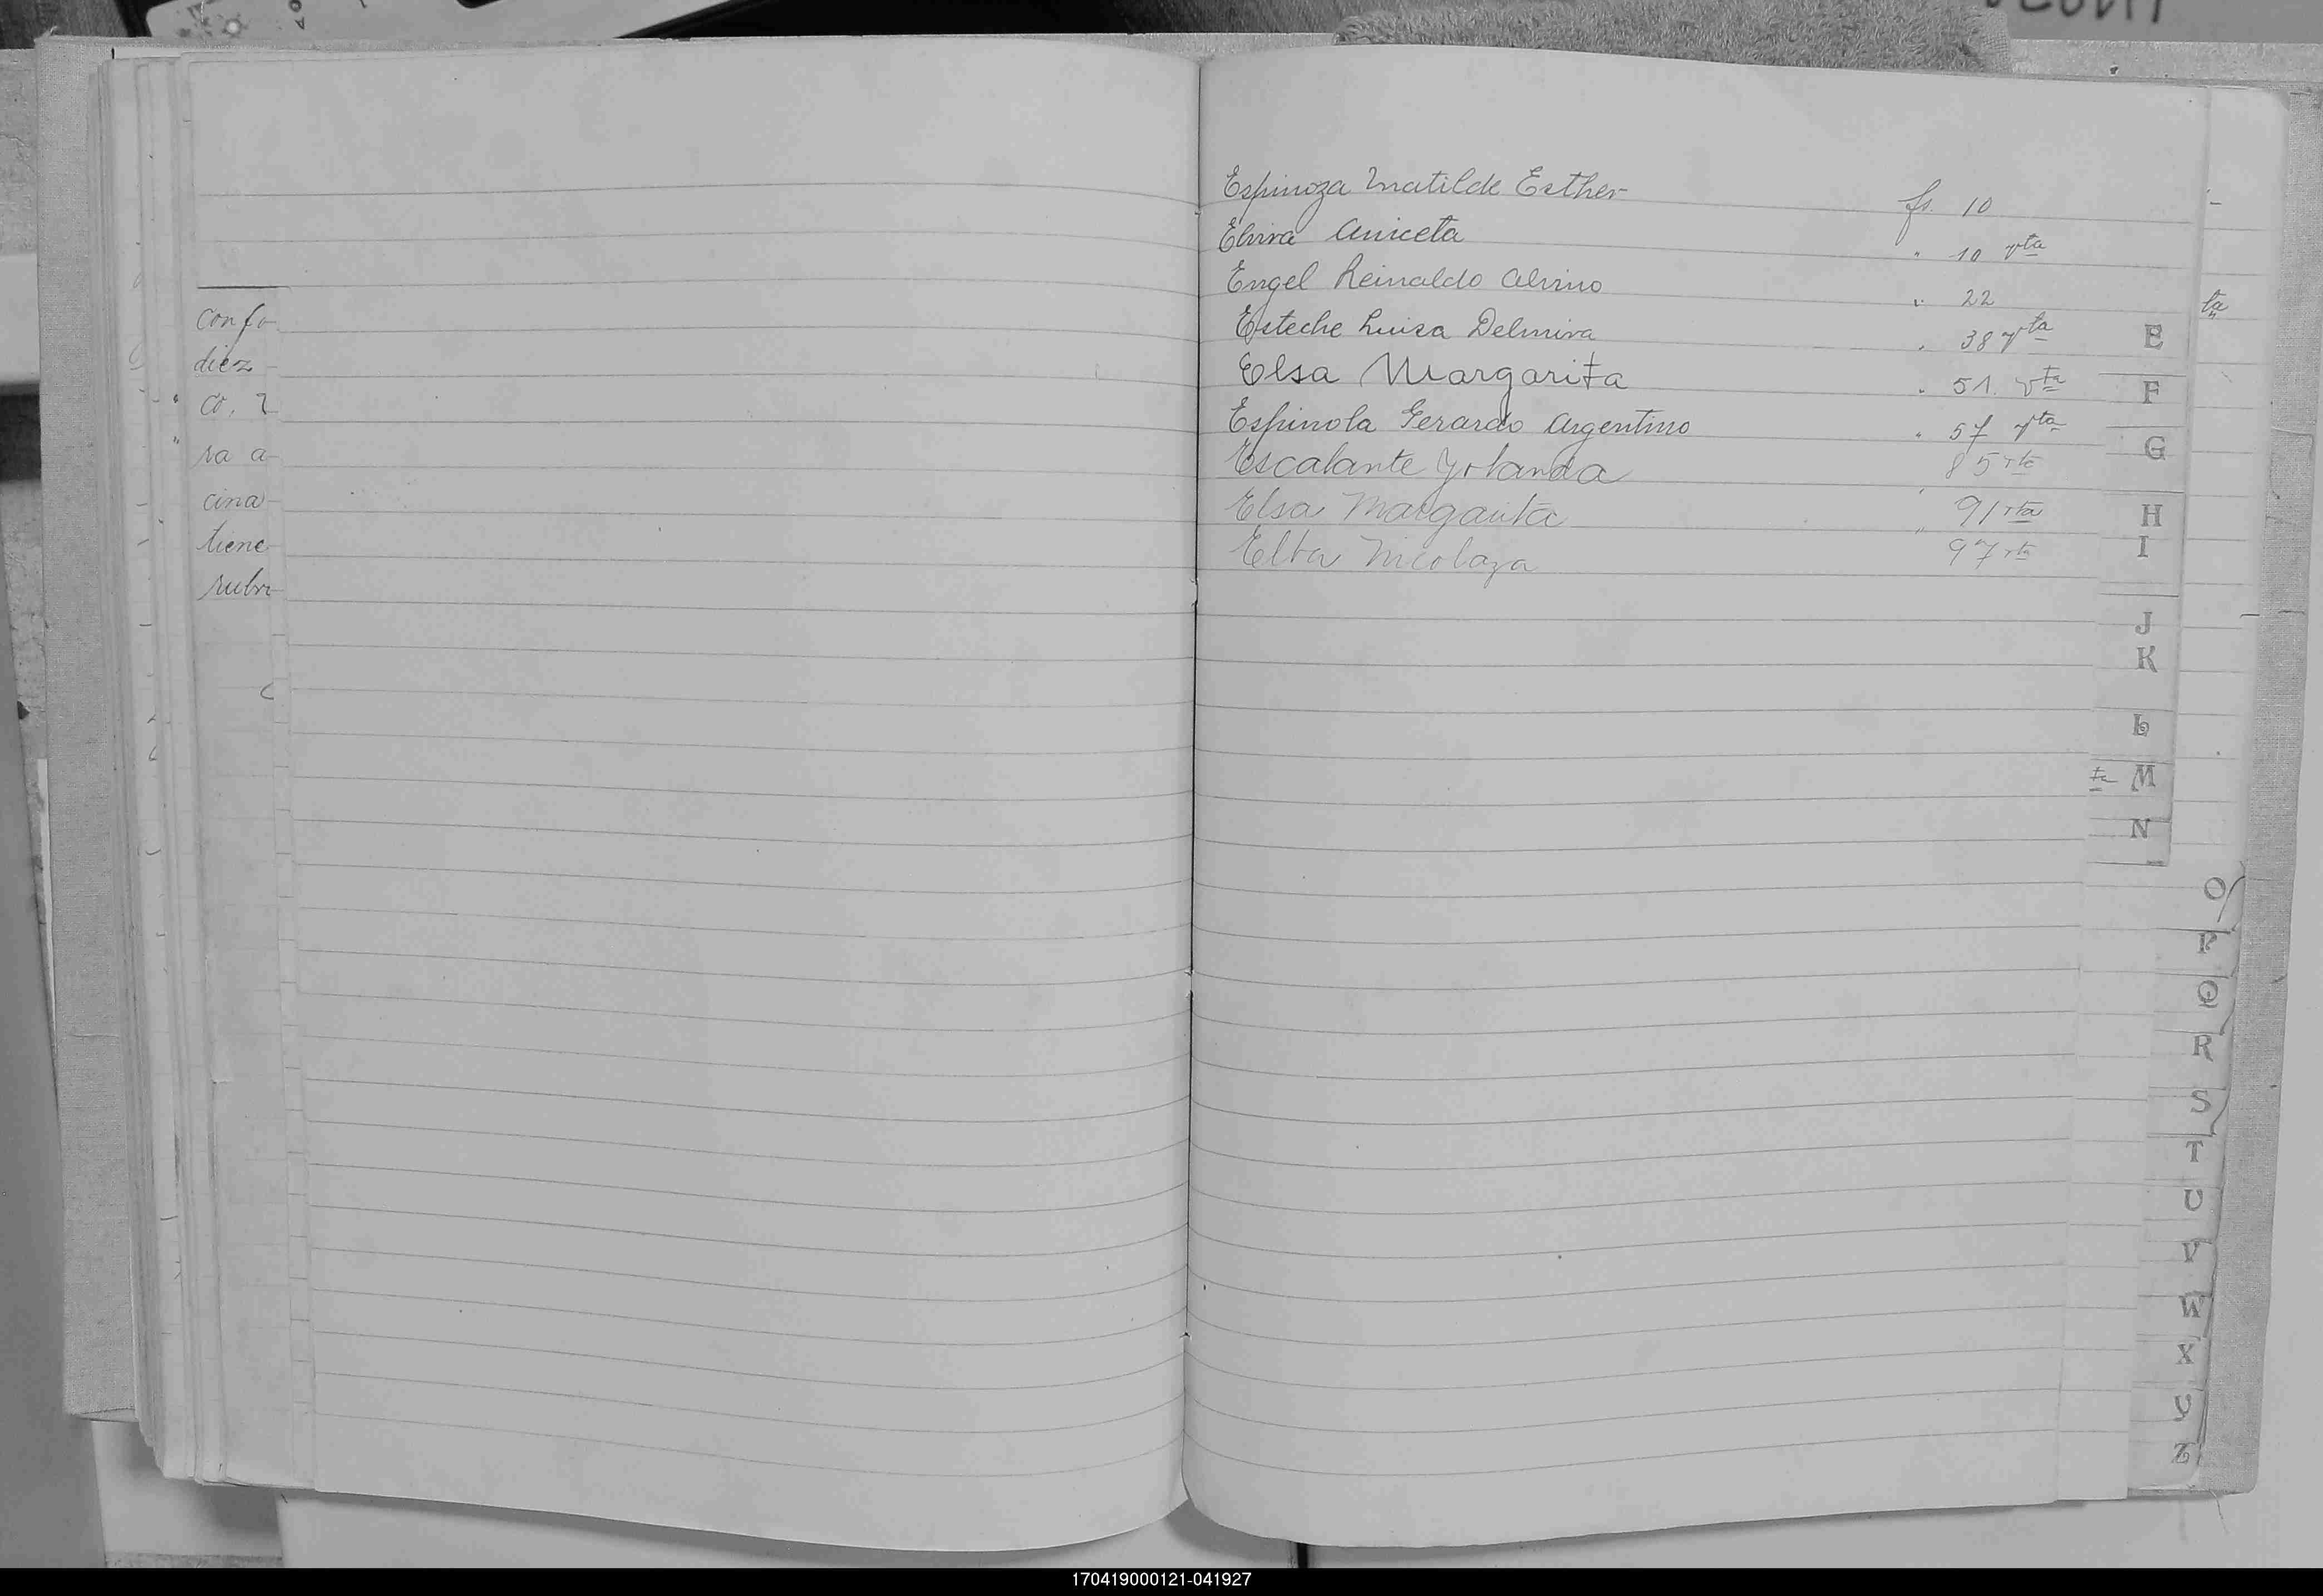 confo
diez
co, 2
ra a
cina
tiene
rubri
Espinoza Matilde Esther fs. 10
Elvira Aniceta " 10 vta
Engel Reinaldo Alvino " 22
Esteche Luisa Delmira " 38 vta
Elsa Margarita " 51 vta
Espinola Gerardo Argentino " 57 vta
Escalante Yolanda " 85 vta
Elsa Margarita " 91 vta
Elba Nicolaza 97 vta
ta
E
F
G
H
I
J
K
L
ta M
N
O
P
Q
R
S
T
U
V
W
X
Y
Z
170419000121-041927